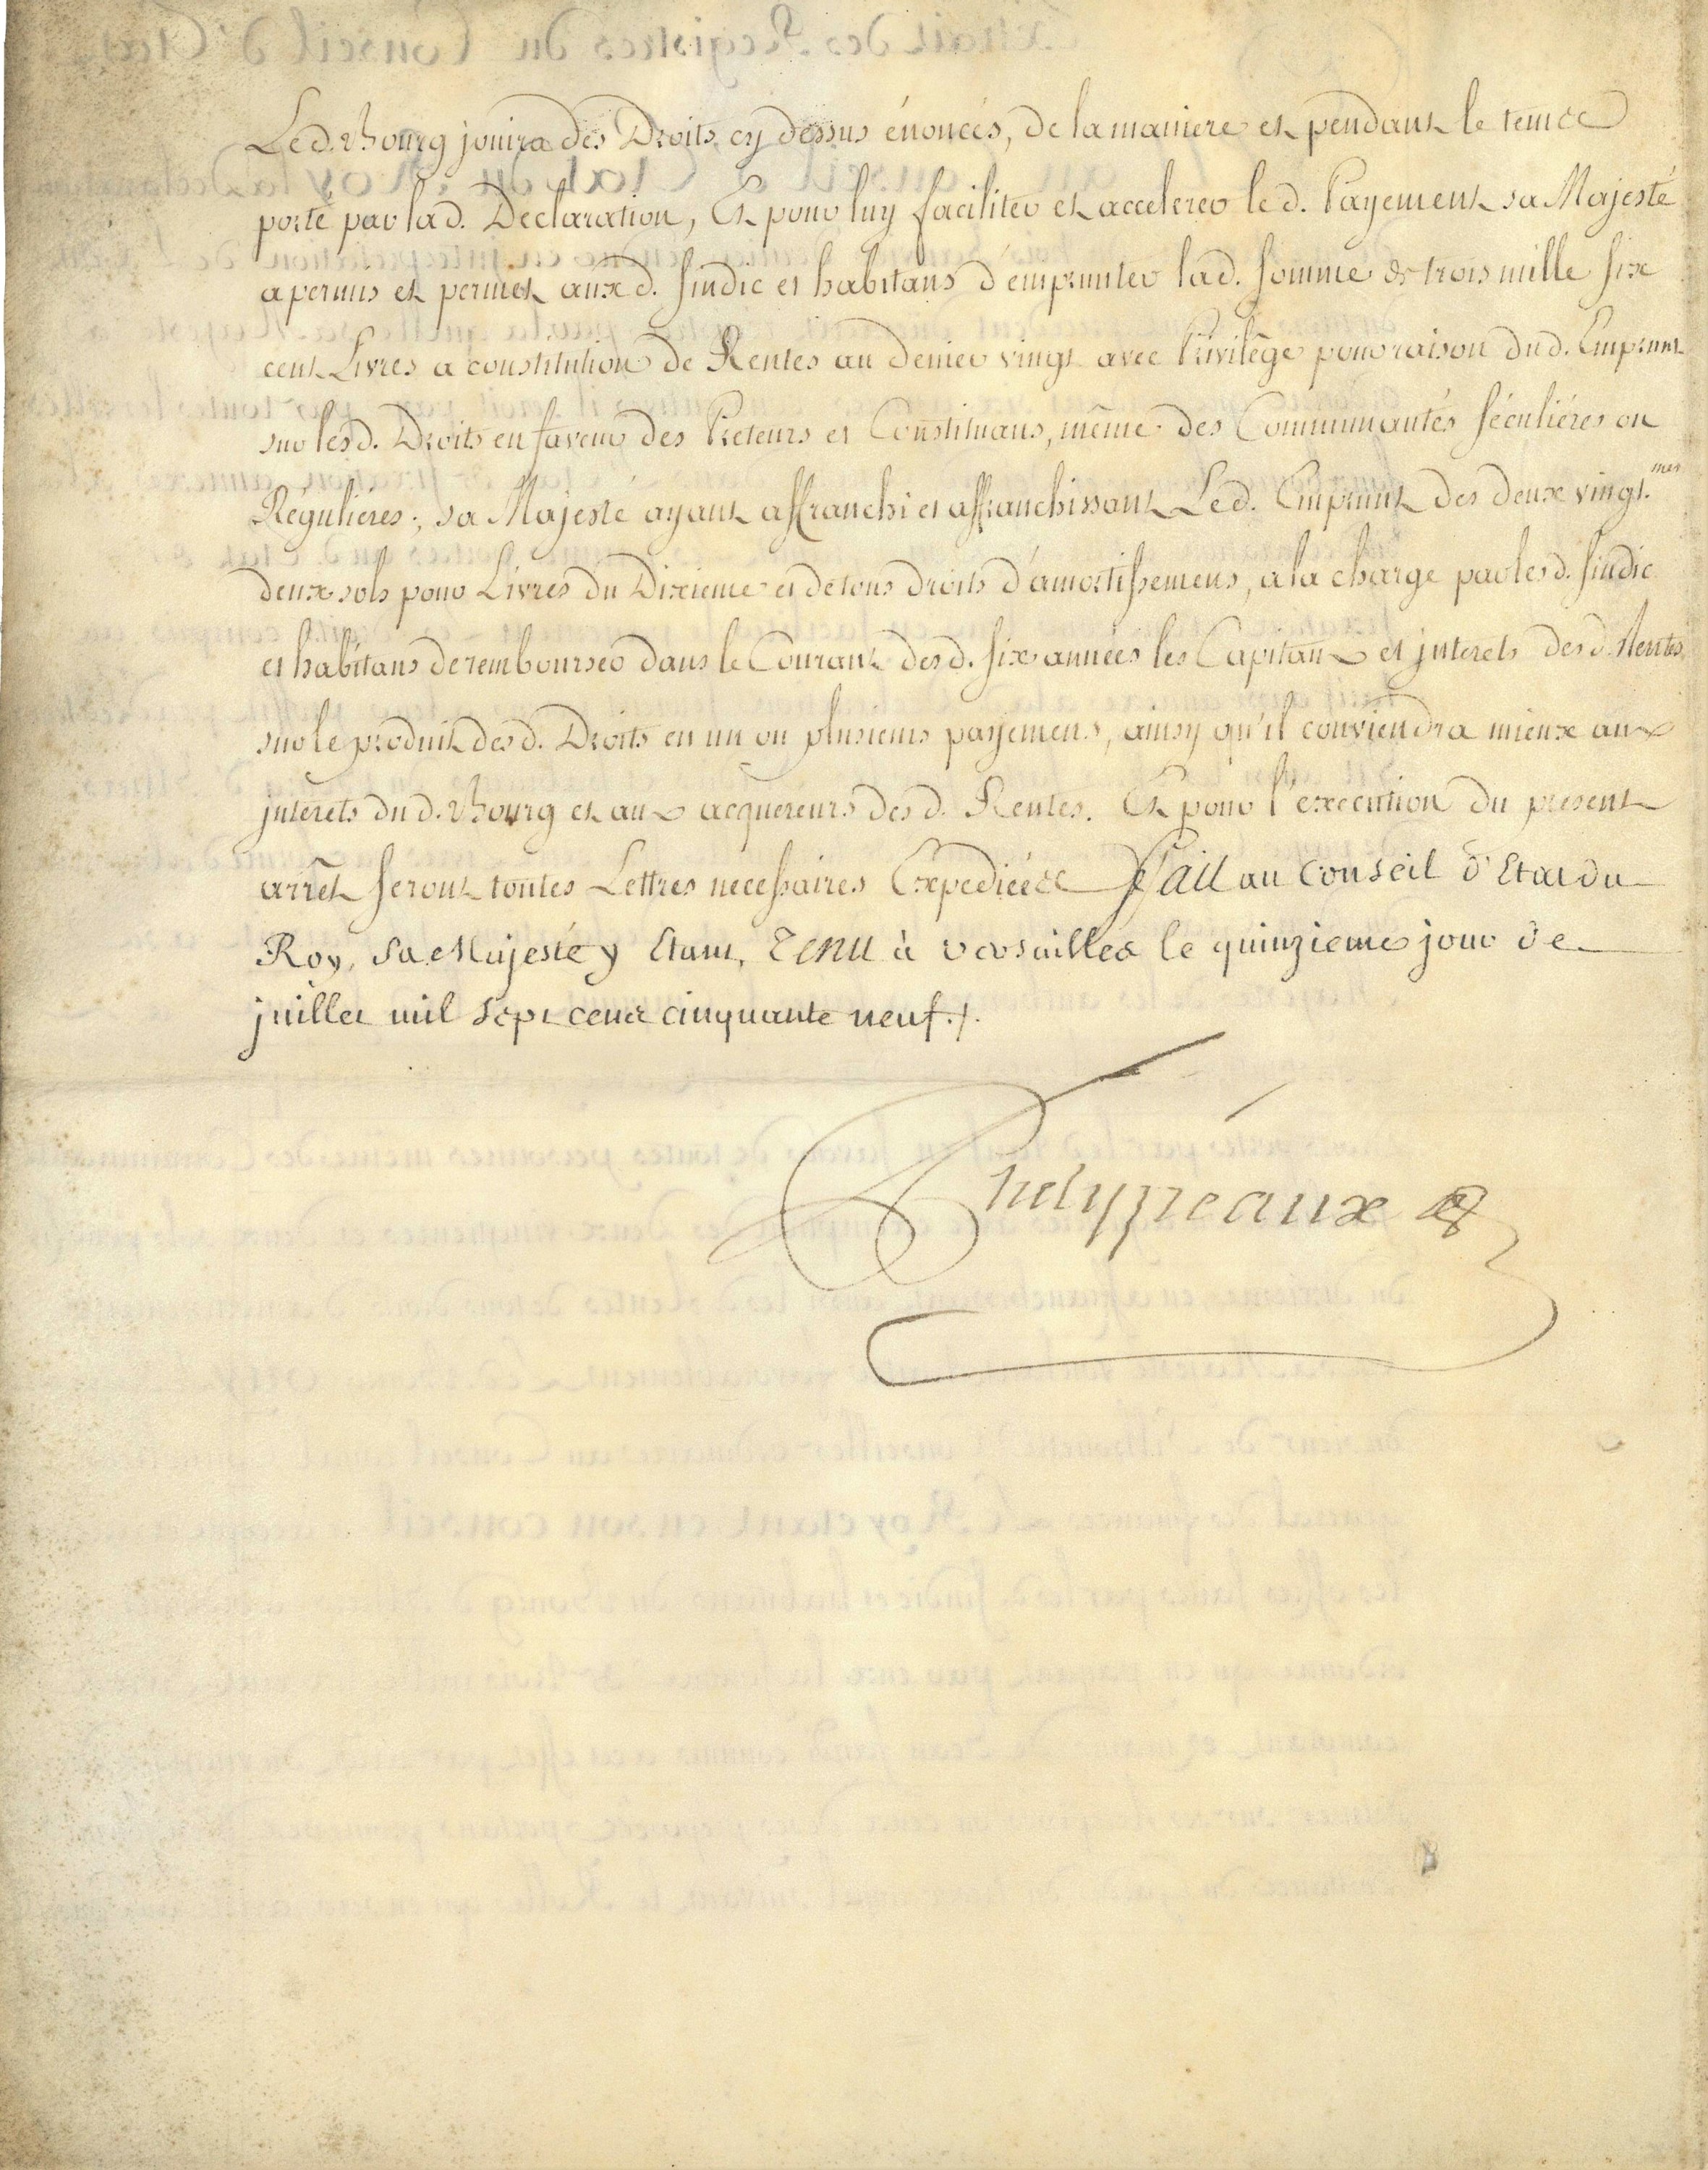 Led. Bourg jouira des Droits cy dessus énoncés, de la maniere et pendant le temse
porté par lad. Declaration, Et pour luy faciliter et accelerer le d. Payement sa Majesté
a permis et permet aux d. sindic et habitans d'emprunter lad. somme de trois mille six
cent Livres a constitution de Rentes au denier vingt avec Privilége pour raison dud. Emprunt
sur lesd. Droits en faveur des Preteurs et Constituans, même des Communautés séculiéres ou
Réguliéres; sa Majesté ayant affranchi et affranchissant Led. Emprunt des deux vingt.mes
deux sols pour Livres du Dixieme et de tous droits d'amortissemens, a la charge par lesd. sindic
et habitans de rembourser dans le Courant desd. six années les Capitaux et jnterets desd. Rentes
sur le produit desd. Droits en un ou plusieurs payemens, ainsy qu'il conviendra mieux aux
jnterets dud. Bourg et aux acquereurs desd. Rentes. Et pour l'execution du present
arrêt seront toutes Lettres necessaires Expediées Fait au Conseil d'Etat du
Roy, Sa Majesté y Etant, Tenu à versailles le quinzieme jour de
juillet mil sept cent cinquante neuf./.
Phelypeaux